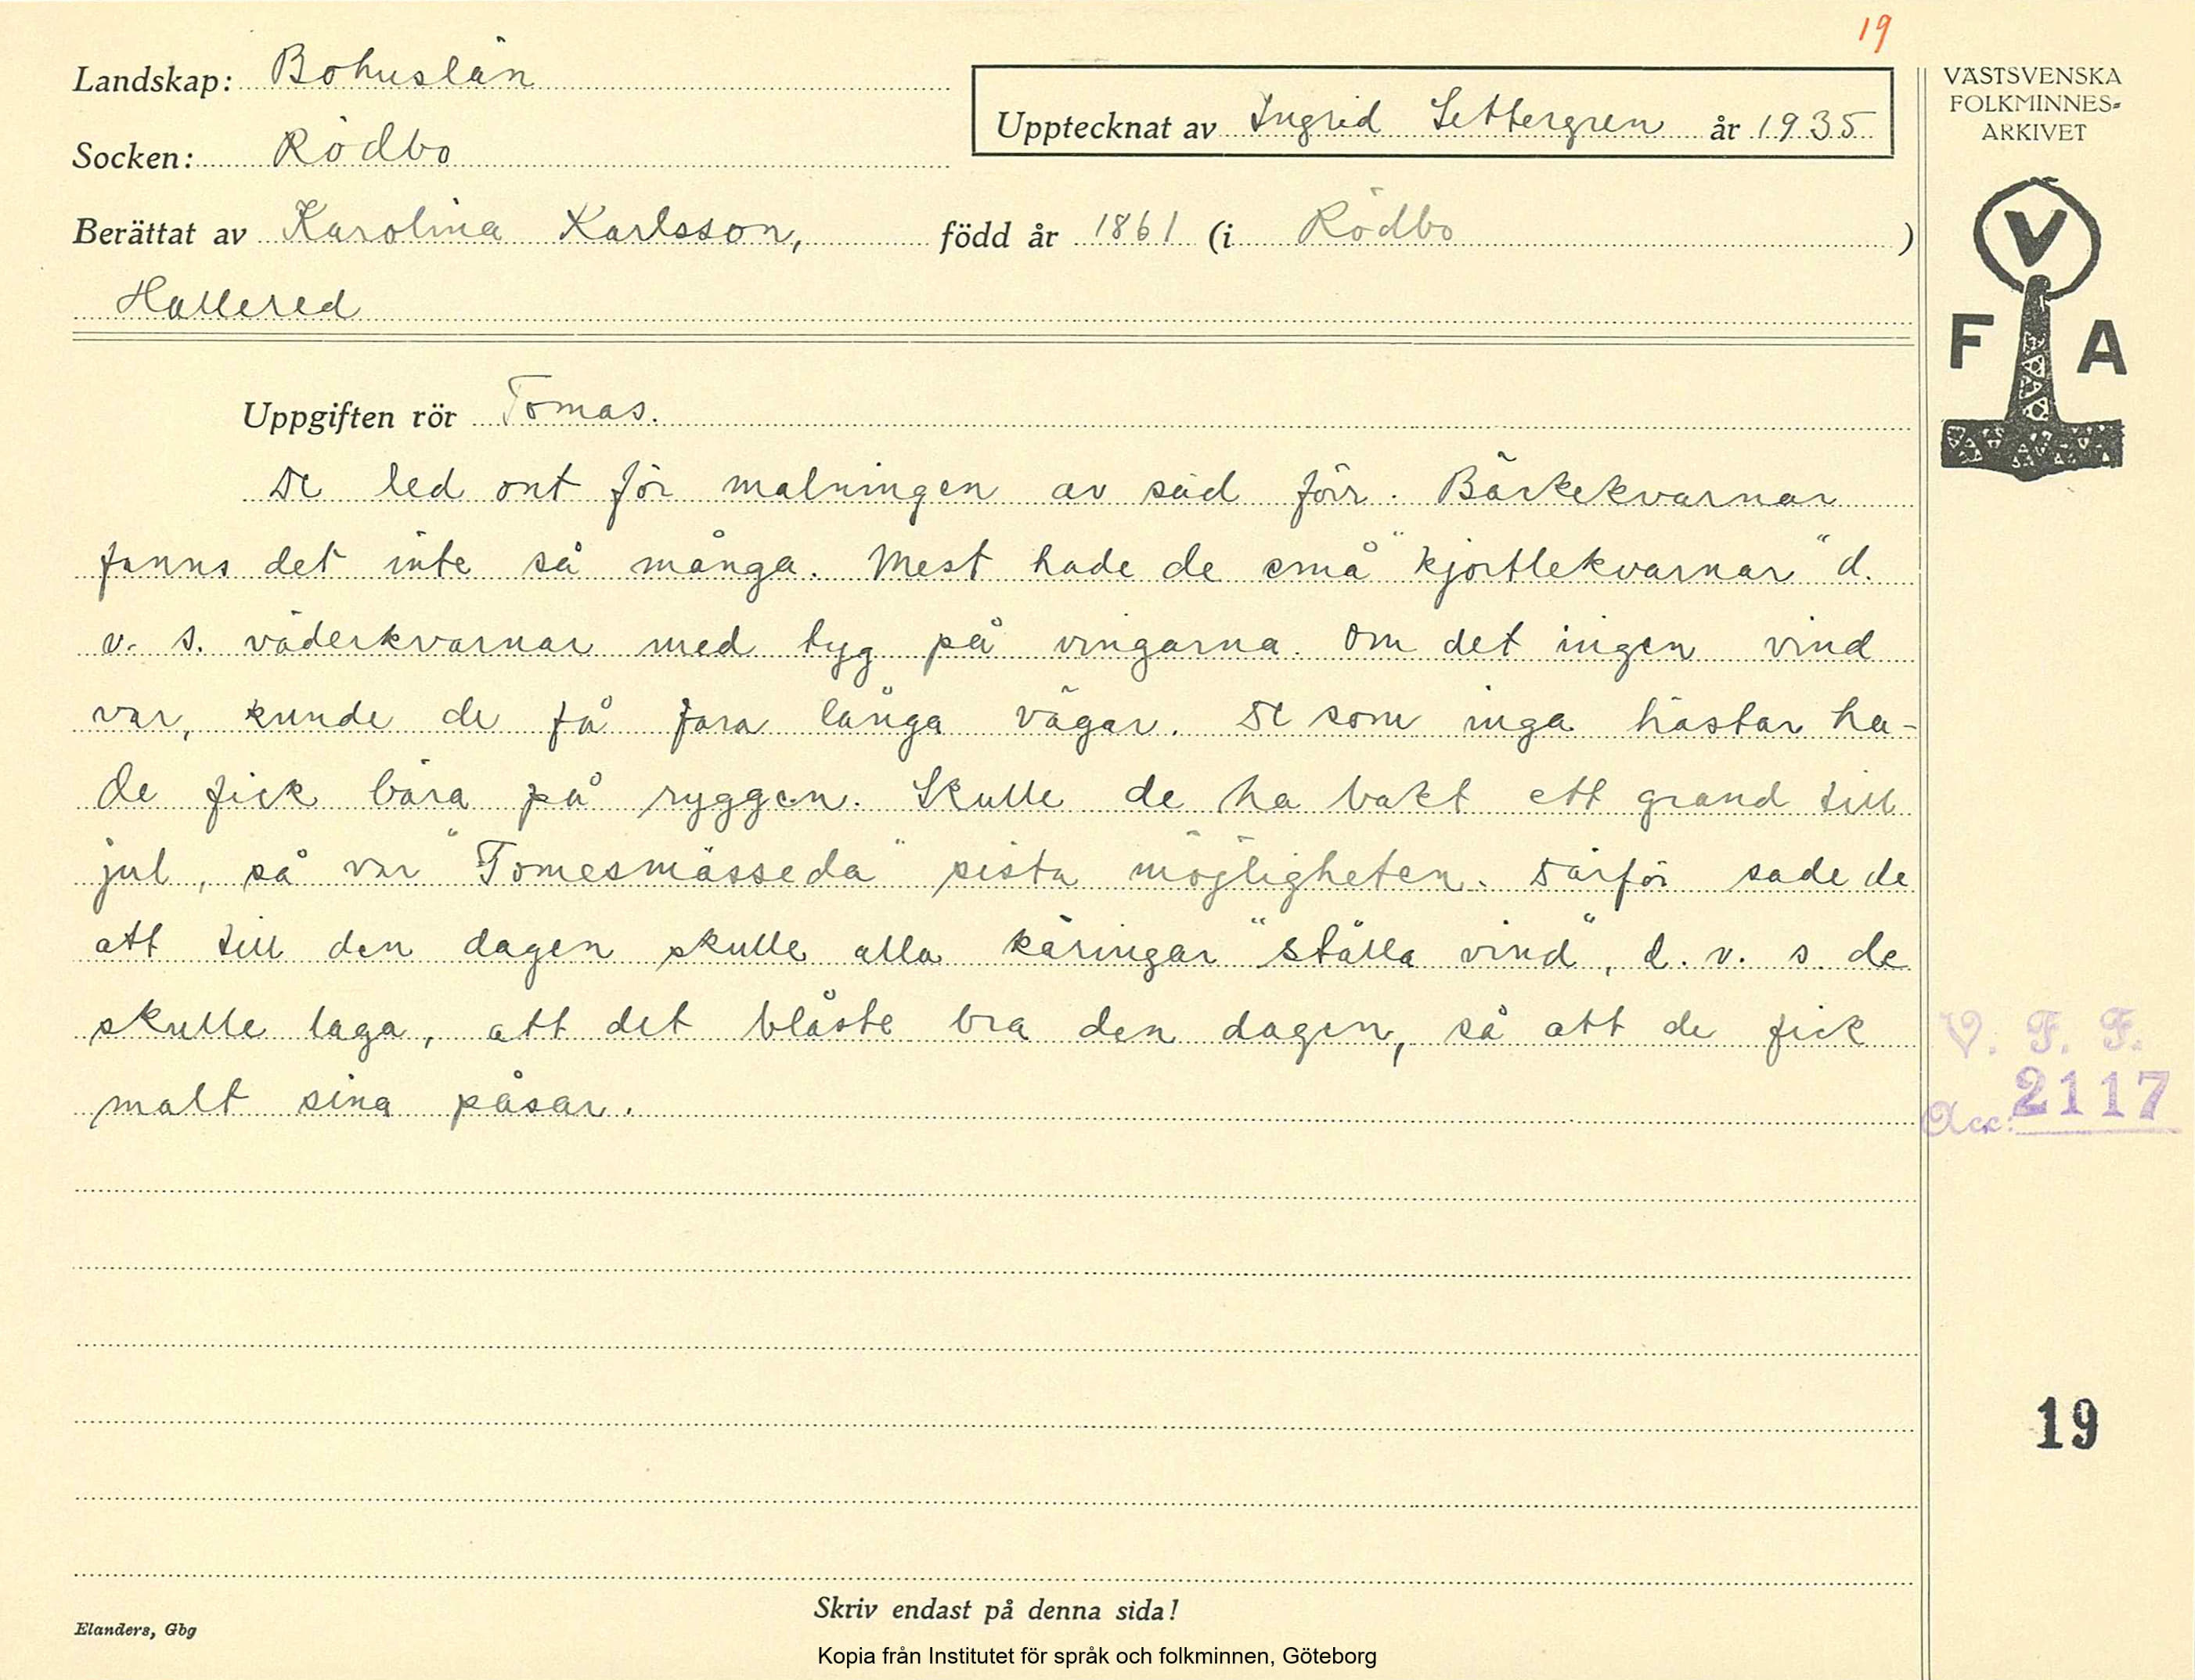 19
Landskap: Bohuslän
Socken: Rödbo
Upptecknat av Ingrid Settergren år 1935
Berättat av Karolina Karlsson, född år 1861 (i Rödbo )
Hallered
Uppgiften rör Tomas.
De led ont för malningen av säd förr. Bärkekvarnar
fanns det inte så många. Mest hade de små "kjortlekvarnar" d.
v. s. väderkvarnar med tyg på vingarna. Om det ingen vind
var, kunde de få fara långa vägar. De som inga hästar ha-
de fick bära på ryggen. Skulle de ha bakt ett grand till
jul, så var "Tomesmässeda" sista möjligheten. Därför sade de
att till den dagen skulle alla käringar "ställa vind", d. v. s. de
skulle laga, att det blåste bra den dagen, så att de fick
malt sina påsar.
VÄSTSVENSKA
FOLKMINNES-
ARKIVET
V
F A
V. F. F.
Acc: 2117
19
Skriv endast på denna sida!
Elanders, Gbg
Kopia från Institutet för språk och folkminnen, Göteborg